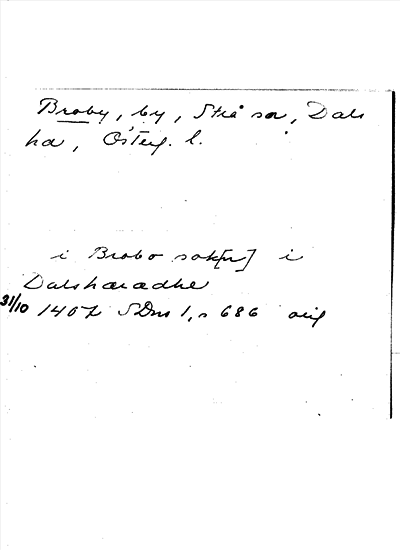 Broby, by, Stråsn, Dals
hd, Österg. l.
i Brobo sok[n] i
Dalshæradhe
31/10 1407 SDns 1, s 686 orig